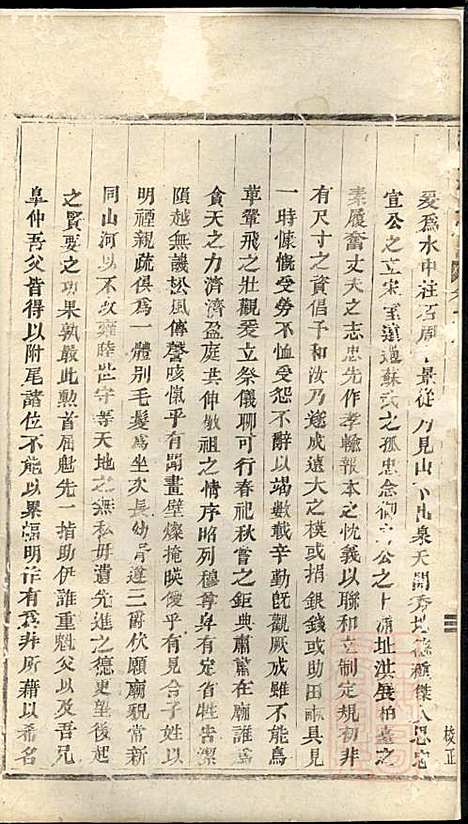 爰爲水中注石周景從乃見山下出泉天開秀地毓種傑人思宅
宣公之立宋室遠過蘇武之孤忠念御公之卜蒲址洪展柏臺之
素履奮丈夫之志忠先作孝輸報本之忱義以聯和立制定規初非
有尺寸之資倡予和汝乃遂成遠大之模或捐銀錢或助田畝具見
一時慷慨受勞不恤受怨不辭以竭數載辛勤旣觀厥成雖不能鳥
革翬飛之壯觀爰立祭儀聊可行春祀秋嘗之鉅典肅肅在廟誰爲
貪天之力濟濟盈庭共伸敬祖之情序昭列穆尊卑有定省牲告潔
隕越無譏松風傳謦咳愾乎有聞畫壁燦掩暎僾乎有見合子姓以
明禋親疏俱爲一體別毛髮爲坐次長幼咼遵三爵佽願廟貌常新
同山河以不改雍睦世守等天地之無私毋遺先進之德更望後起
之賢要之功果孰嚴此勲首屈魁先一措助伊誰重魁父以及吾兄
阜仲吾父皆得以附尾諸位不能以畢福明詐有爲非所藉以番名
校正